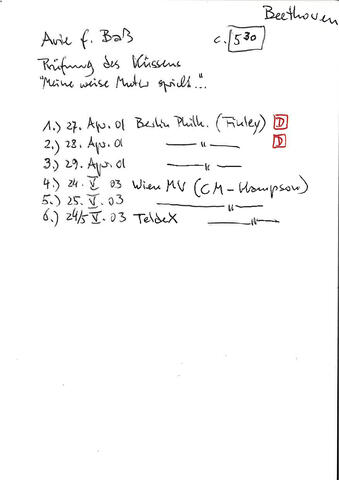 Beethoven
Arie f. Baß c. 530
Prüfung des Küssens
"Meine weise Mutter spricht..."
1.) 27. Apr. 01 Berlin Philh. (Finley) D
2.) 28. Apr. 01 —"— D
3.) 29. Apr. 01 —"—
4.) 24. V 03 Wien MV (CM-Hampson)
5.) 25. V. 03 —"—
6.) 24/5 V. 03 Teldex —"—